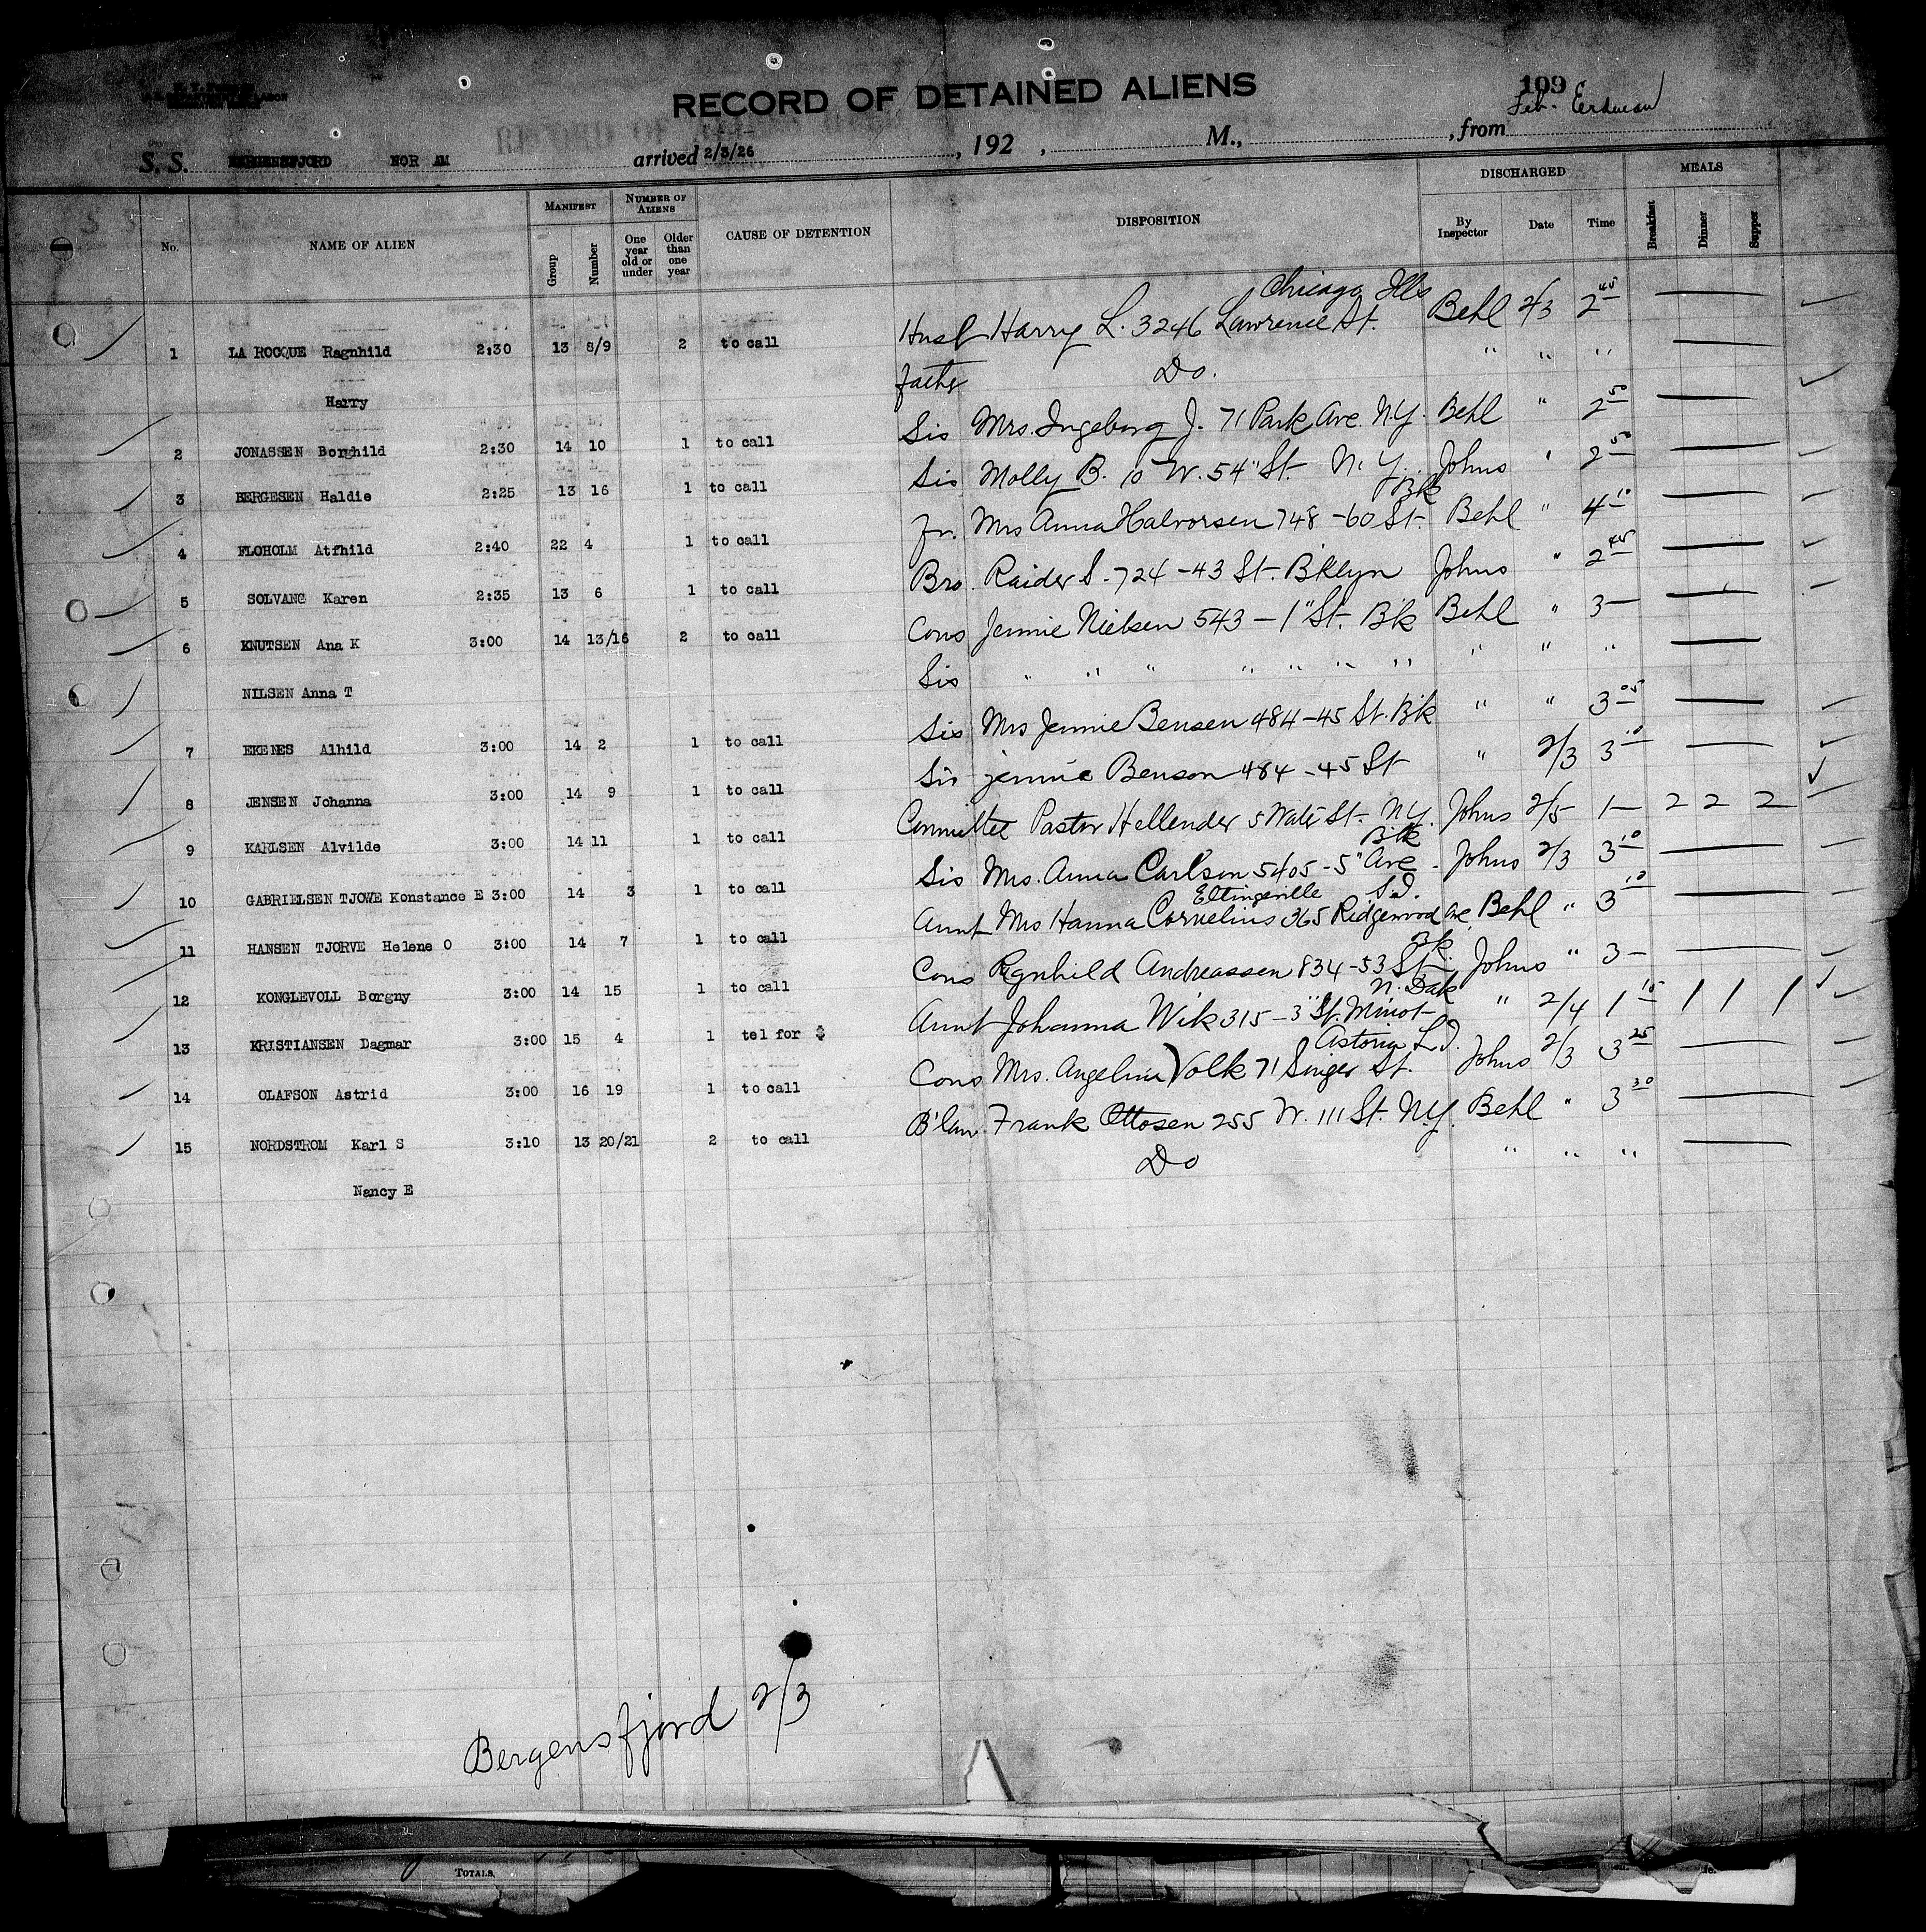 RECORD OF DETAINED ALIENS
109
S. S. BERGENSFJORD NOR AM arrived 2/3/26, 192 , M., , from
DISCHARGED MEALS
No. NAME OF ALIEN MANIFEST Group Number NUMBER OF ALIENS One year old or under Older than one year CAUSE OF DETENTION DISPOSITION By Inspector Date Time Breakfast Dinner Supper
Chicago Ills
1 LA ROCQUE Ragnhild 2:30 13 8/9 2 to call Husb Harry L. 3246 Lawrence St. Behl 2/3 2 45 —
Harry father Do. " " " —
2 JONASSEN Borghild 2:30 14 10 1 to call Sis Mrs. Ingeborg J. 71 Park Ave. N.Y. Behl " 2 50 —
3 BERGESEN Haldie 2:25 13 16 1 to call Sis Molly B. 10 W. 54" St. N.Y. Johns " 2 50 —
Bk
4 FLOHOLM Atfhild 2:40 22 4 1 to call fr. Mrs Anna Halvorsen 748 - 60 St. Behl " 4 10 —
5 SOLVANG Karen 2:35 13 6 1 to call Bro Raider S. 724 - 43 St. Bklyn Johns " 2 45 —
6 KNUTSEN Ana K 3:00 14 13/16 2 to call Cons Jennie Nielsen 543 - 1" St. Bk Behl " 3 — —
NILSEN Anna T Sis " " " " " " " " " —
7 EKENES Alhild 3:00 14 2 1 to call Sis Mrs Jennie Bensen 484 - 45 St. Bk " " 3 05 —
8 JENSEN Johanna 3:00 14 9 1 to call Sis jennie Benson 484 - 45 St " 2/3 3 10 —
9 KARLSEN Alvilde 3:00 14 11 1 to call Committee Pastor Hellender 5 Water St. N.Y. Johns 2/5 1 — 2 2 2
Bk
10 GABRIELSEN TJOWE Konstance E 3:00 14 3 1 to call Sis Mrs. Anna Carlson 5405 - 5" Ave. Johns 2/3 3 10 —
Eltingeville S.I.
11 HANSEN TJORVE Helene O 3:00 14 7 1 to call Aunt Mrs Hanna Cornelius 365 Ridgewood Ave. Behl " 3 10 —
Bk
12 KONGLEVOLL Borgny 3:00 14 15 1 to call Cons Rgnhild Andreassen 834 - 53 St. Johns " 3 — —
N. Dak
13 KRISTIANSEN Dagmar 3:00 15 4 1 tel for $ Aunt Johanna Wik 315 - 3" St. Minot " 2/4 1 15 1 1 1
Astoria L.I.
14 OLAFSON Astrid 3:00 16 19 1 to call Cons Mrs. Angelina Volk 71 Singer St. Johns 2/3 3 25 —
15 NORDSTROM Karl S 3:10 13 20/21 2 to call B'law. Frank Ottosen 255 W. 111 St. N.Y. Behl " 3 30 —
Nancy E Do " " " —
Bergensfjord 2/3
TOTALS